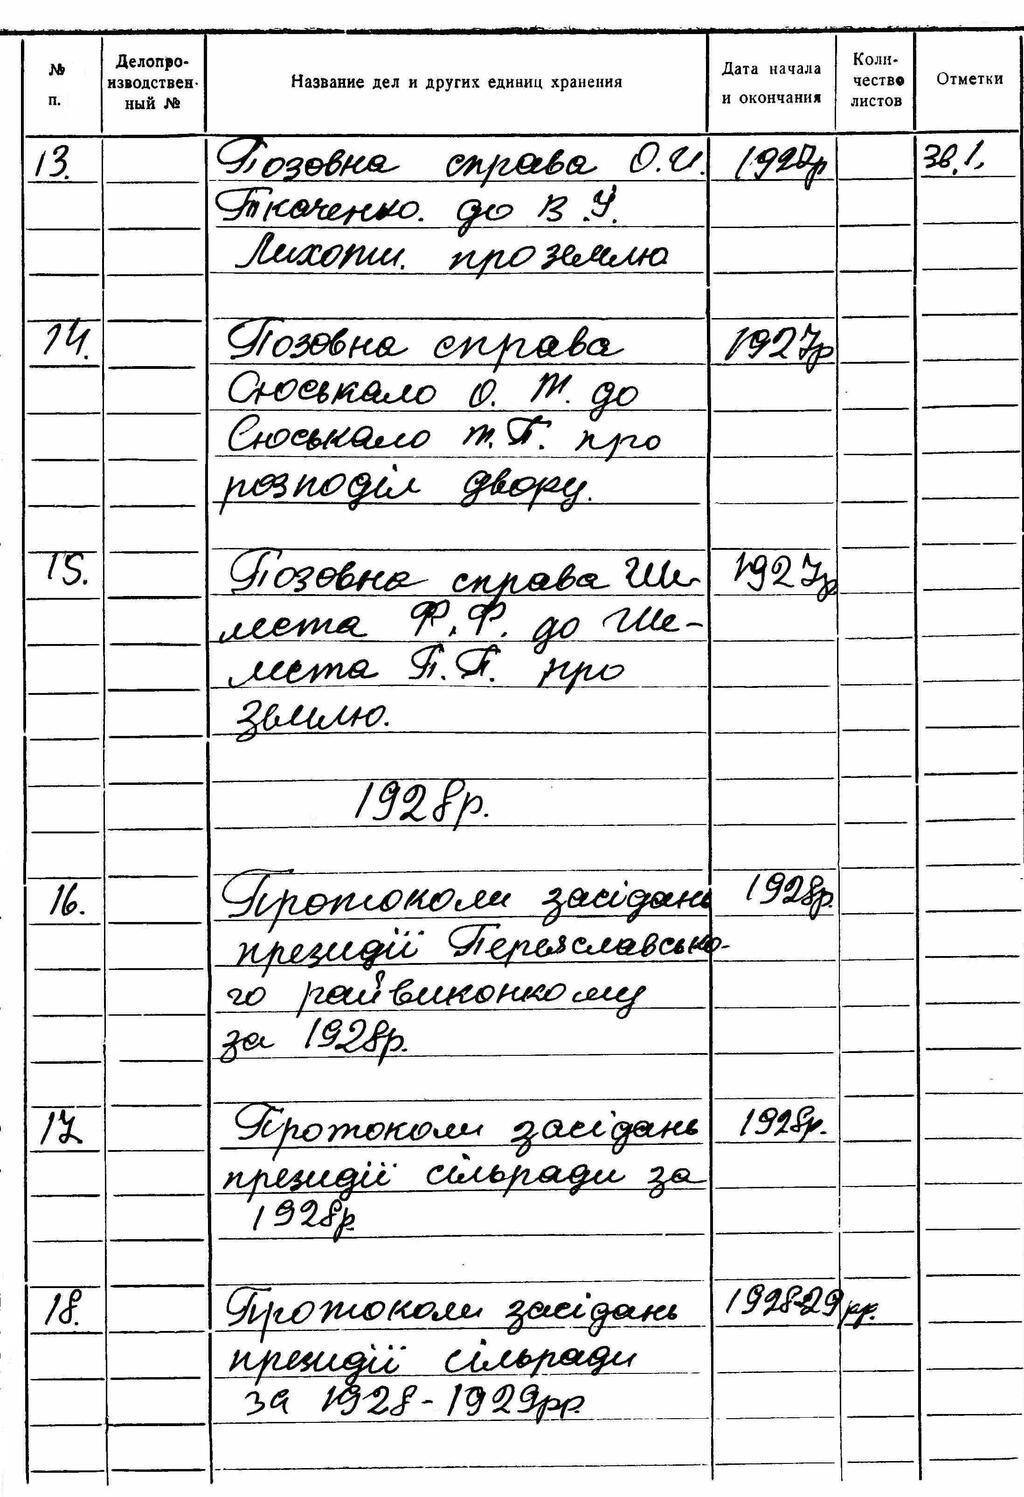 № п.
Делопроизводственный №
Название дел и других единиц хранения
Дата начала и окончания
Количество листов
Отметки
13. Позовна справа О.И. 1927р зв.1.
Ткаченко. до В.У.
Лихоти. про землю
14. Позовна справа 1927р
Сюськало О. Т. до
Сюськало Т.П. про
розподіл двору.
15. Позовна справа Ше- 1927р
места Ф.Ф. до Ше-
места П.П. про
землю.
1928р.
16. Протоколи засідань 1928р.
президії Переяславсько-
го райвиконкому
за 1928р.
17. Протоколи засідань 1928р.
президії сільради за
1928р.
18. Протоколи засідань 1928-29рр.
президії сільради
за 1928-1929рр.